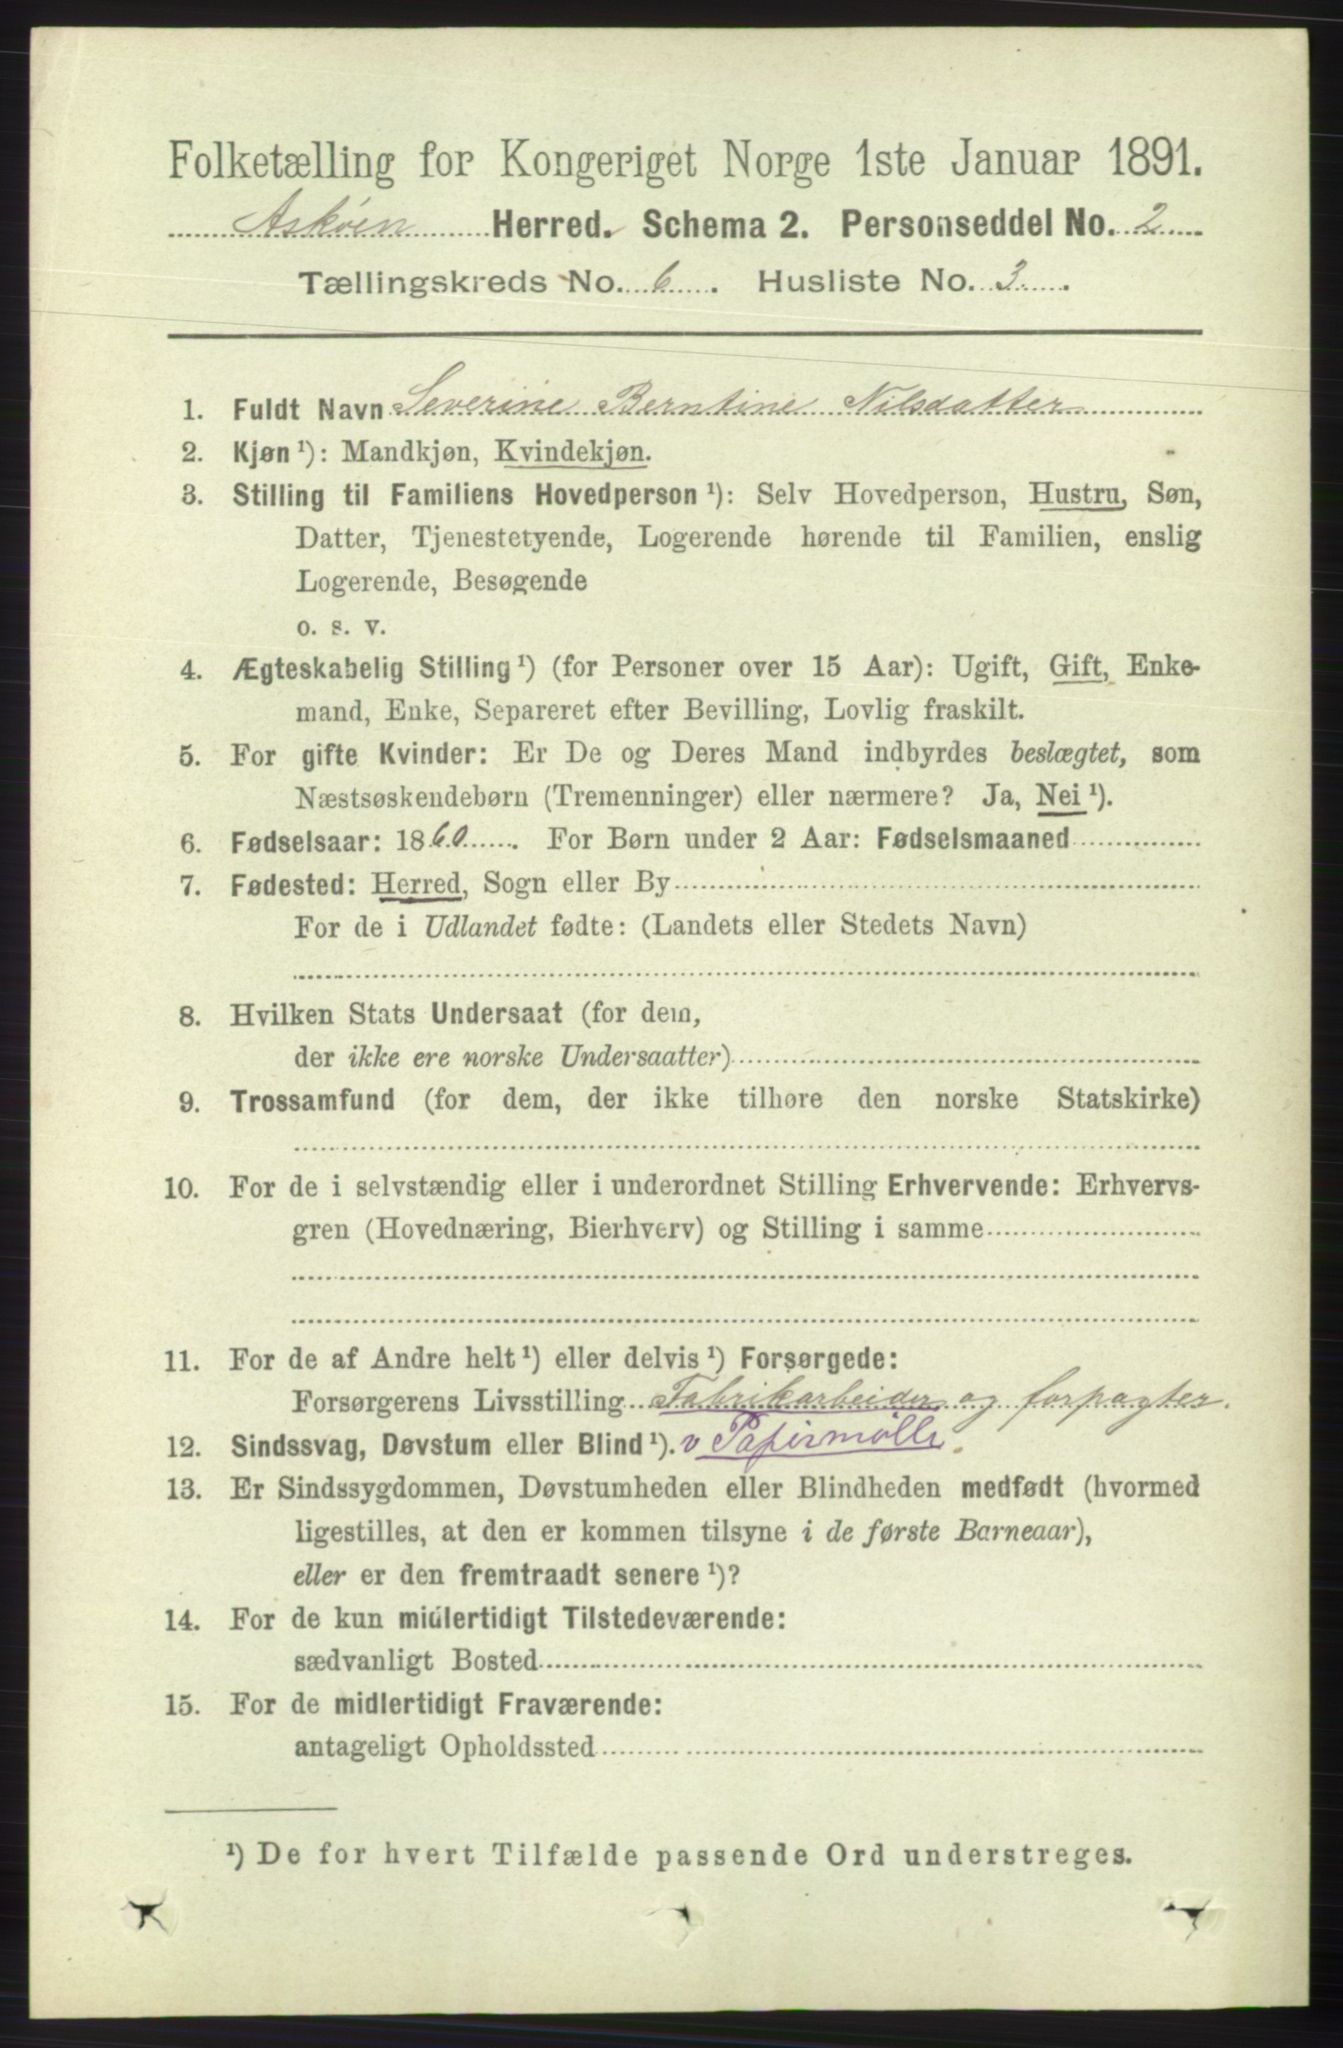 Folketælling for Kongeriget Norge 1ste Januar 1891.
Askøen Herred. Schema 2. Personseddel No. 2
Tællingskreds No. 6. Husliste No. 3.
1. Fuldt Navn Severine Berntine Nilsdatter
2. Kjøn ¹): Mandkjøn, Kvindekjøn.
3. Stilling til Familiens Hovedperson ¹): Selv Hovedperson, Hustru, Søn,
Datter, Tjenestetyende, Logerende hørende til Familien, enslig
Logerende, Besøgende
o. s. v.
4. Ægteskabelig Stilling ¹) (for Personer over 15 Aar): Ugift, Gift, Enke-
mand, Enke, Separeret efter Bevilling, Lovlig fraskilt.
5. For gifte Kvinder: Er De og Deres Mand indbyrdes beslægtet, som
Næstsøskendebørn (Tremenninger) eller nærmere? Ja, Nei ¹).
6. Fødselsaar: 1860. For Børn under 2 Aar: Fødselsmaaned
7. Fødested: Herred, Sogn eller By
For de i Udlandet fødte: (Landets eller Stedets Navn)
8. Hvilken Stats Undersaat (for dem,
der ikke ere norske Undersaatter)
9. Trossamfund (for dem, der ikke tilhøre den norske Statskirke)
10. For de i selvstændig eller i underordnet Stilling Erhvervende: Erhvervs-
gren (Hovednæring, Bierhverv) og Stilling i samme
11. For de af Andre helt ¹) eller delvis ¹) Forsørgede:
Forsørgerens Livsstilling Fabrikarbeider og forpagter.
12. Sindssvag, Døvstum eller Blind ¹). v Papirmølle
13. Er Sindssygdommen, Døvstumheden eller Blindheden medfødt (hvormed
ligestilles, at den er kommen tilsyne i de første Barneaar),
eller er den fremtraadt senere ¹)?
14. For de kun midlertidigt Tilstedeværende:
sædvanligt Bosted
15. For de midlertidigt Fraværende:
antageligt Opholdssted
¹) De for hvert Tilfælde passende Ord understreges.